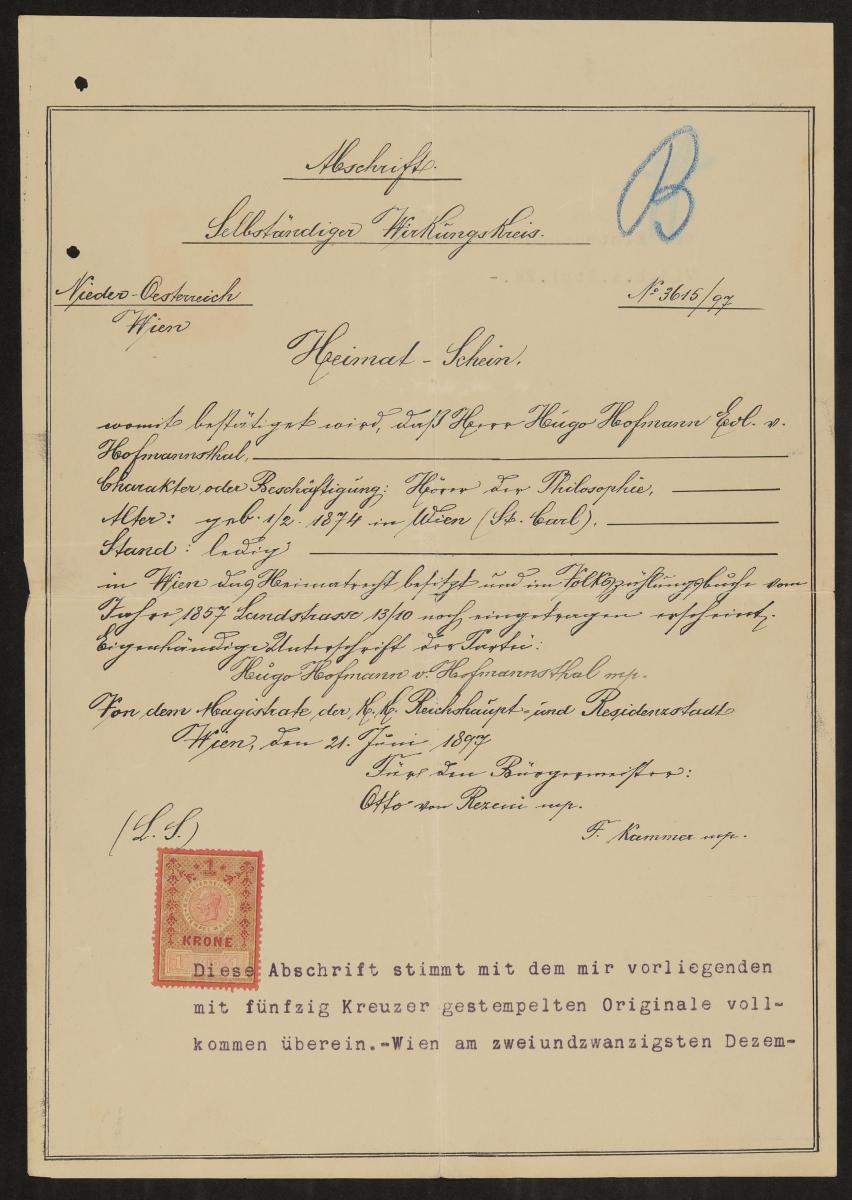 B
Abschrift.
Selbständiger Wirkungskreis.
Nieder-Oesterreich
Wien
No 3615/97
Heimat-Schein.
womit bestätiget wird, daß Herr Hugo Hofmann Edl. v.
Hofmannsthal,
Charakter oder Beschäftigung: Hörer der Philosophie,
Alter: geb. 1/2. 1874 in Wien (St. Carl),
Stand: ledig
in Wien das Heimatrecht besitzt und im Volkszählungsbuche vom
Jahre 1857 Landstrasse 13/10 noch eingetragen erscheint.
Eigenhändige Unterschrift der Partei:
Hugo Hofmann v. Hofmannsthal mp.
Von dem Magistrate der K. K. Reichshaupt- und Residenzstadt
Wien, den 21. Juni 1897
Für den Bürgermeister:
Otto von Rezeni mp.
(L. S.)
F. Kammer mp.
1
KRONE
1
Diese Abschrift stimmt mit dem mir vorliegenden
mit fünfzig Kreuzer gestempelten Originale voll-
kommen überein.-Wien am zweiundzwanzigsten Dezem-